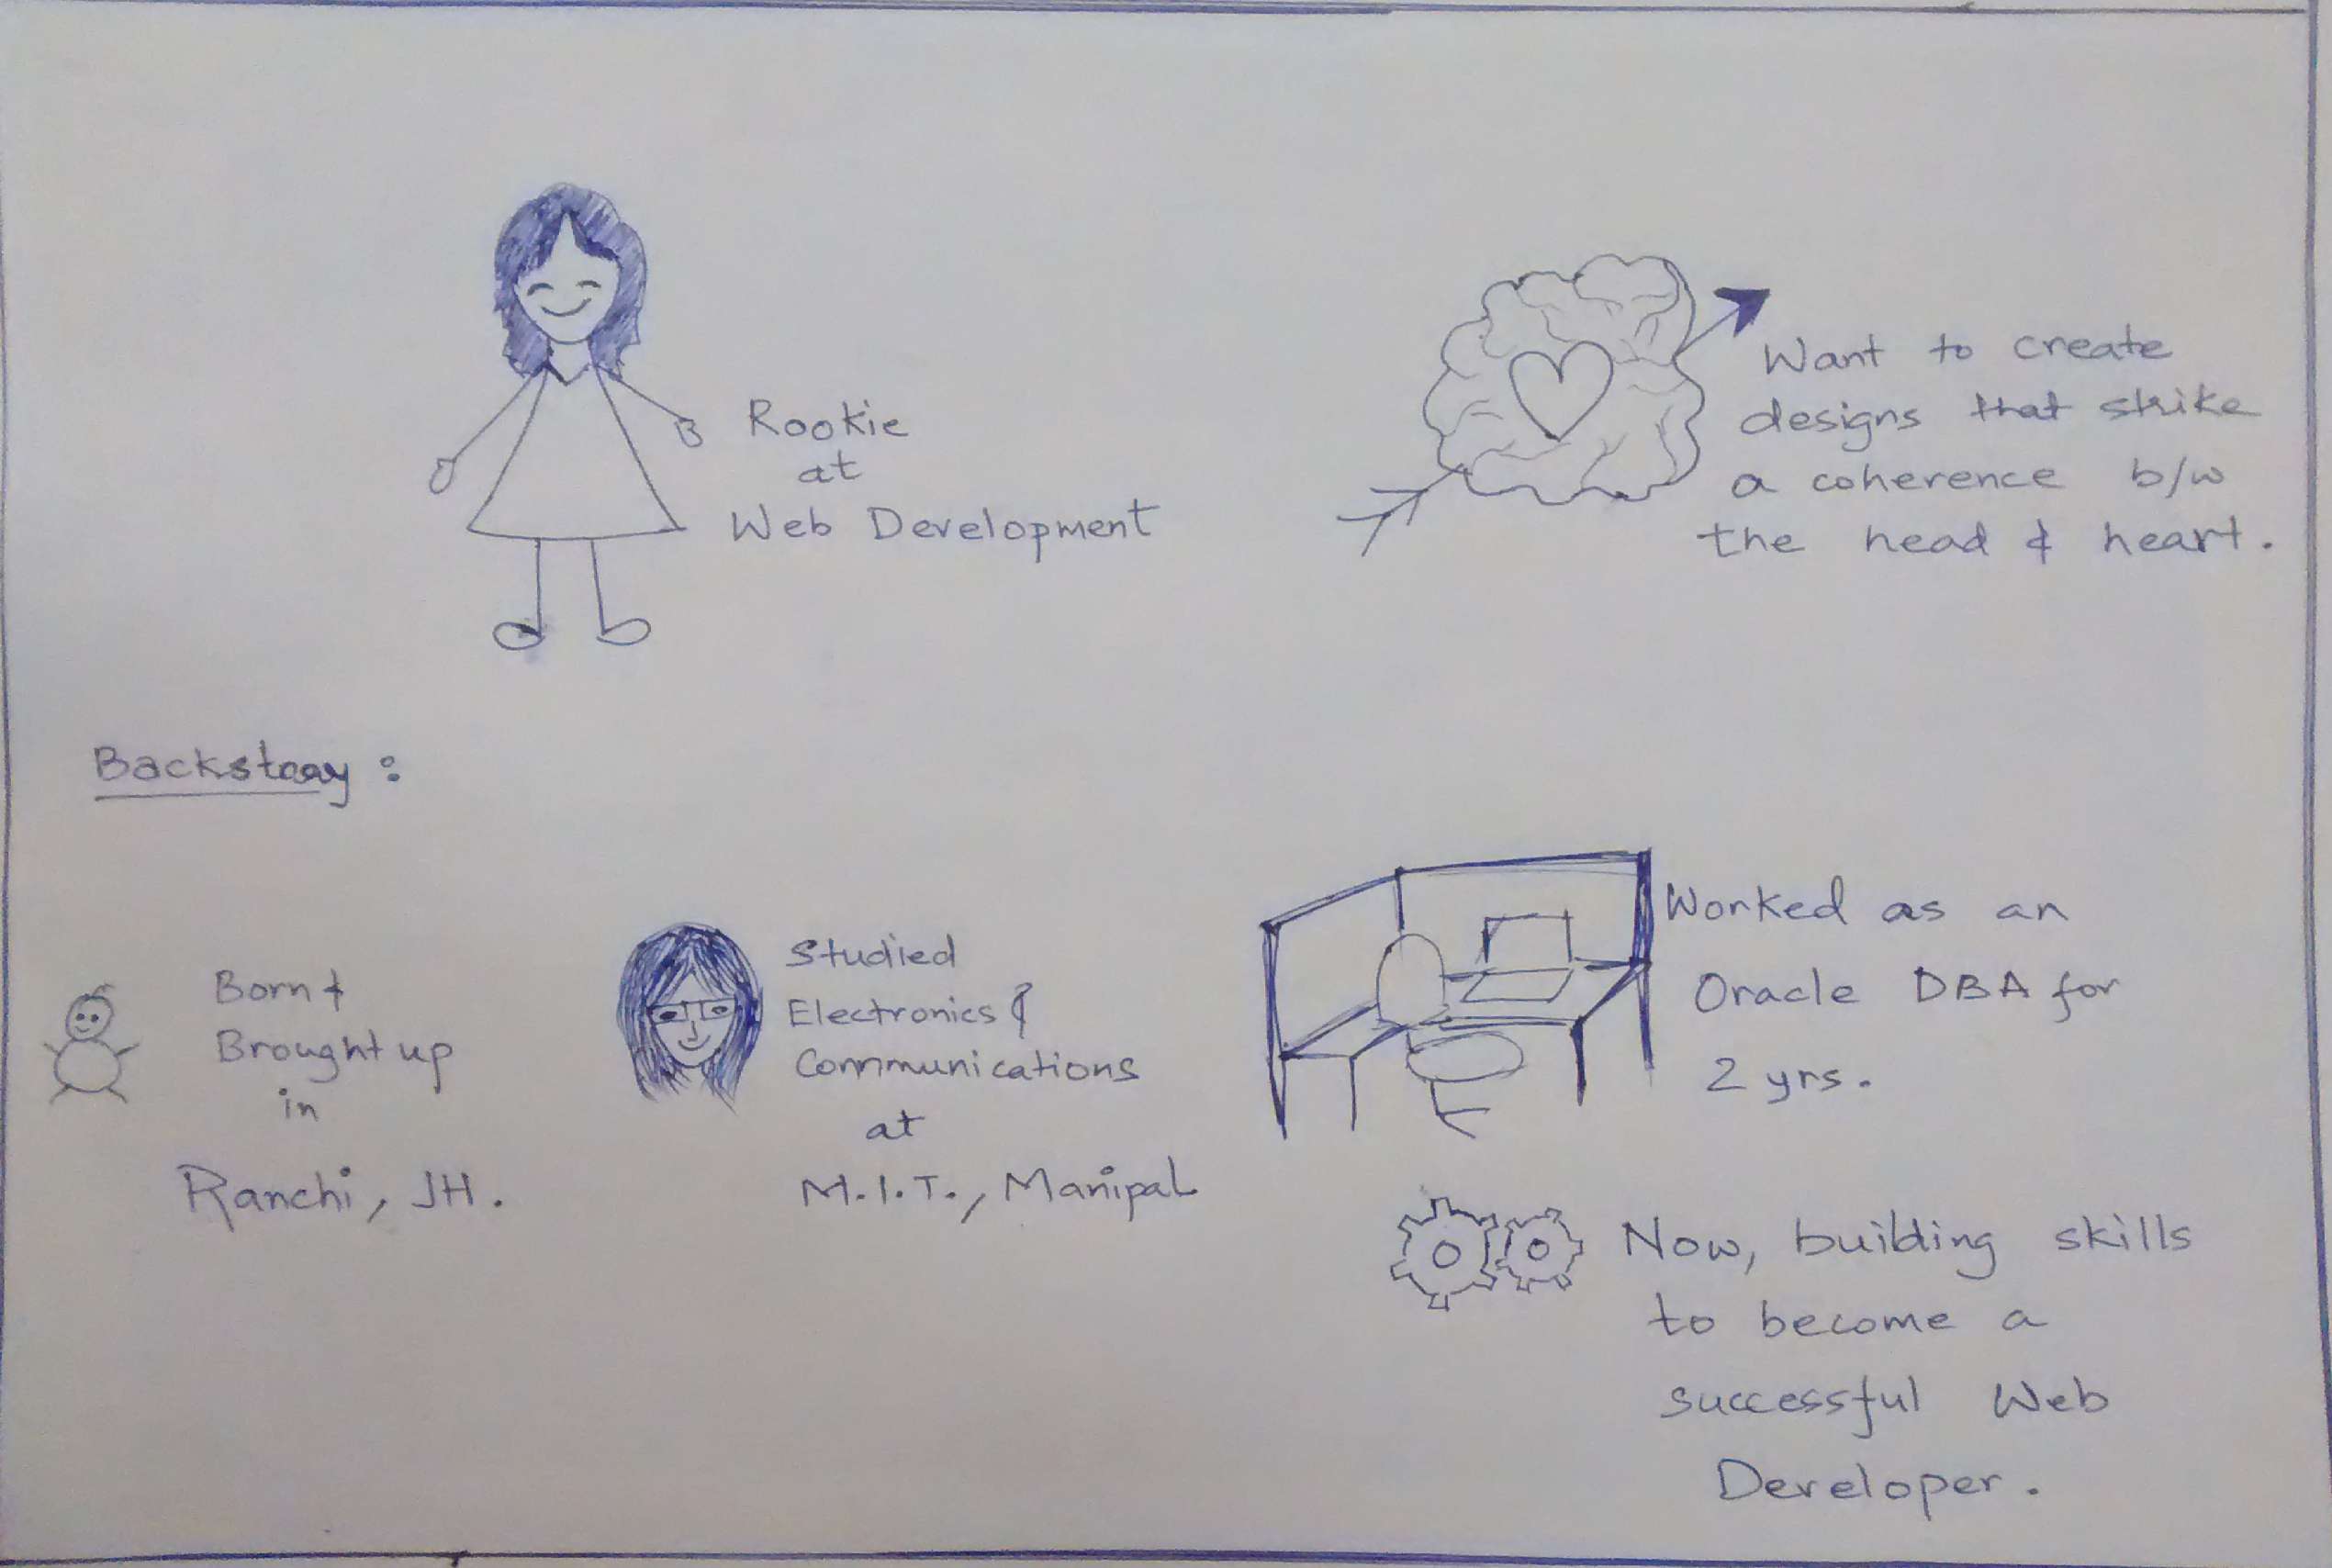 Rookie
at
Web Development
Want to create
designs that strike
a coherence b/w
the head & heart.
Backstory :
Born &
Brought up
in
Ranchi, JH.
Studied
Electronics &
Communications
at
M.I.T., Manipal
Worked as an
Oracle DBA for
2 yrs.
Now, building skills
to become a
successful Web
Developer.